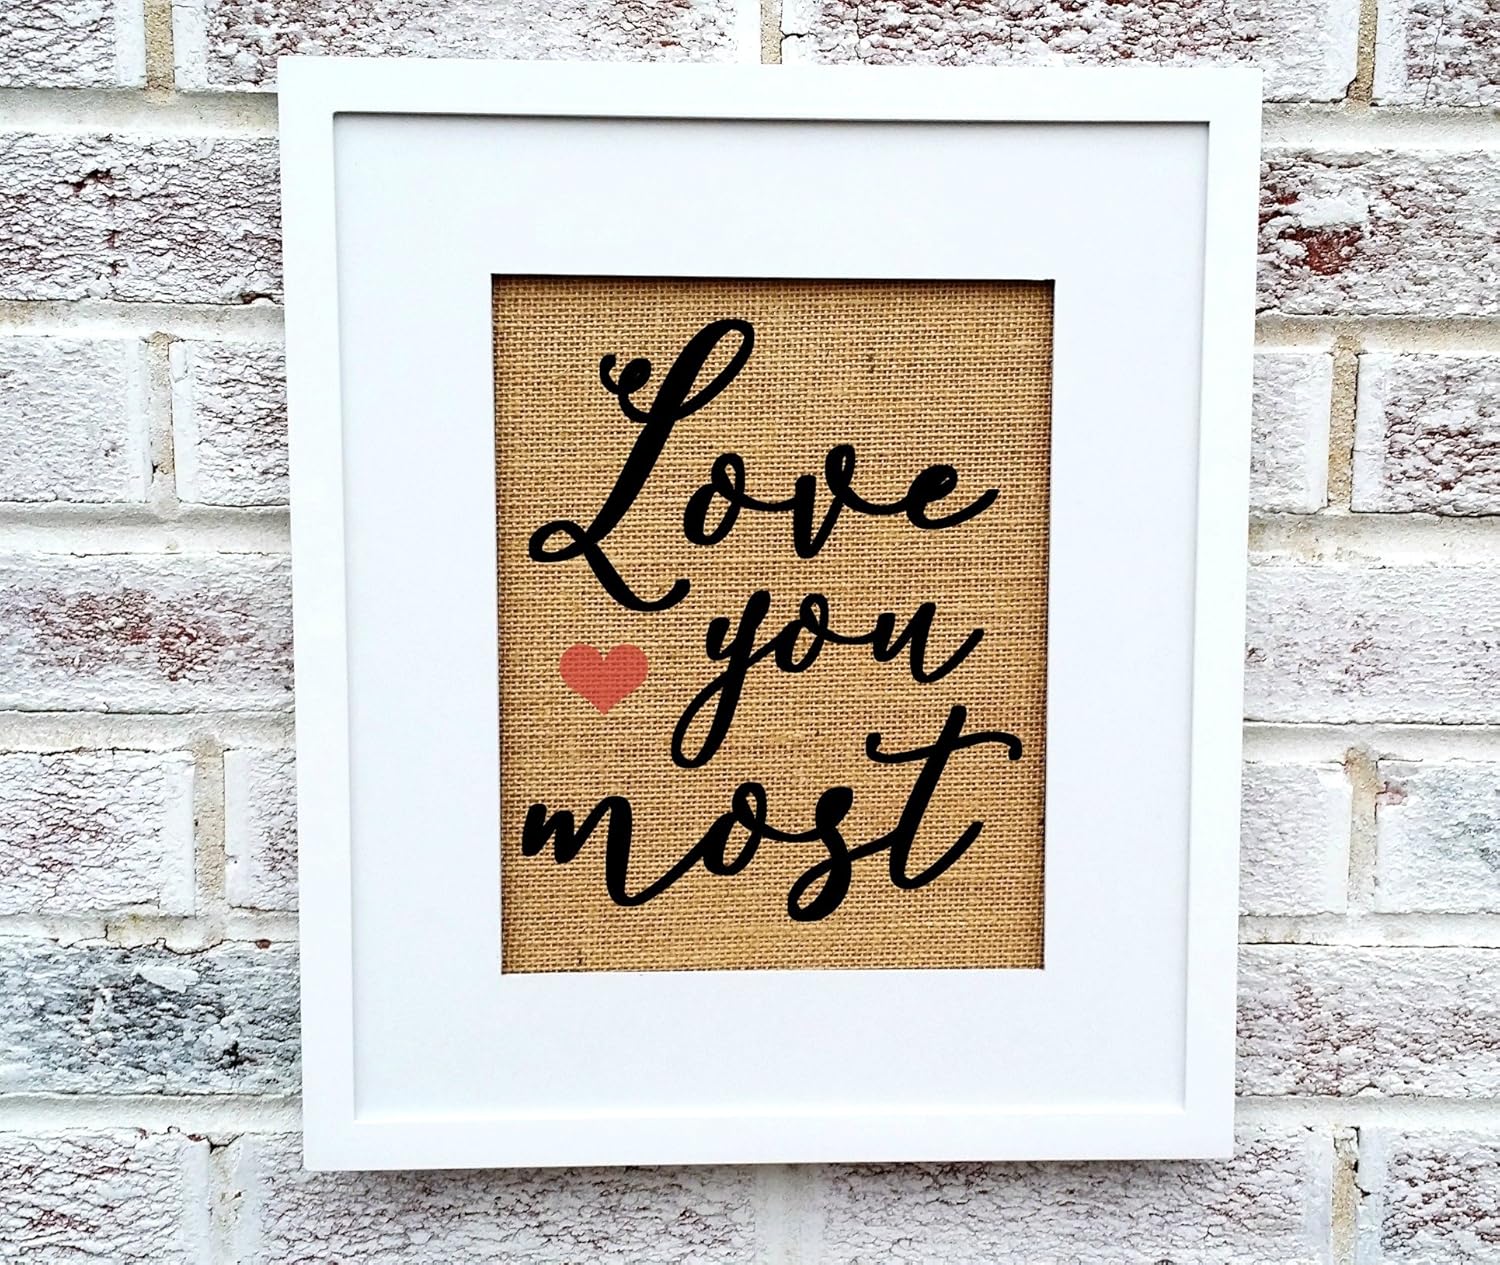 Love
you
most